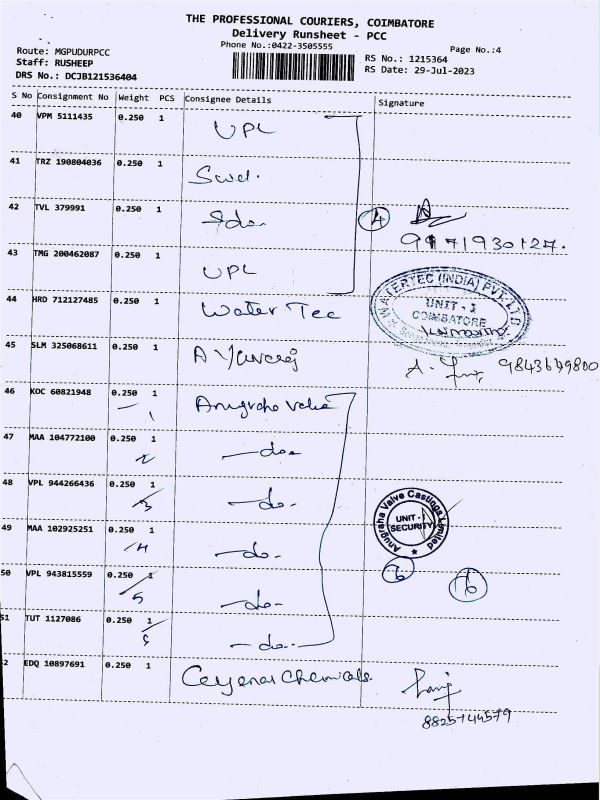 THE PROFESSIONAL COURIERS, COIMBATORE
Delivery Runsheet - PCC
Phone No.:0422-3505555
Page No.:4
Route: MGPUDURPCC
Staff: RUSHEEP
DRS No.: DCJB121536404
RS No.: 1215364
RS Date: 29-Jul-2023
S No Consignment No Weight PCS Consignee Details Signature
40 VPM 5111435 0.250 1 UPL
41 TRZ 190804036 0.250 1
42 TVL 379991 0.250 1 4
43 TMG 200462087 0.250 1 UPL
WATERTEC (INDIA) PVT. LTD.
UNIT - 1
COIMBATORE
44 HRD 712127485 0.250 1 Water Tec
45 SLM 325068611 0.250 1 A Yuvaraj
46 KOC 60821948 0.250 1 1
47 MAA 104772100 0.250 1 2 -do-
48 VPL 944266436 0.250 1 3 -do-
Anugraha Valve Castings Limited
UNIT - I
SECURITY
49 MAA 102925251 0.250 1 4 -do-
50 VPL 943815559 0.250 1 5 -do-
51 TUT 1127086 0.250 1 6 -do-
2 EDQ 10897691 0.250 1
8825744579